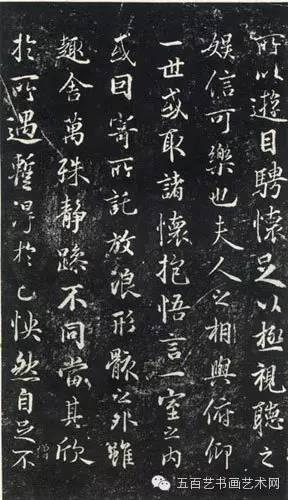 所以遊目騁懷足以極視聽之
娛信可樂也夫人之相與俯仰
一世或取諸懷抱悟言一室之內
或因寄所託放浪形骸之外雖
趣舍萬殊靜躁不同當其欣
於所遇暫得於己怏然自足不
僧
五百艺书画艺术网